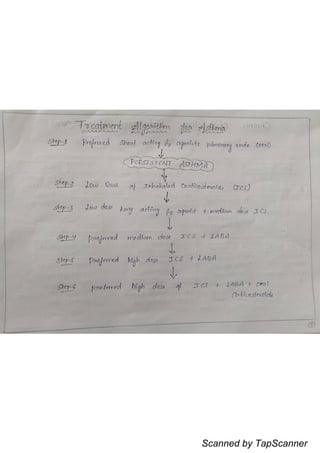 Treatment Algorithm for Asthma
Step-1 Preferred short acting β2 agonists pulmonary
PERSISTENT ASTHMA
Step-2 Low Dose of Inhalaled Corticosteroids (ICS)
Step-3 Low dose long acting β2 agonist + medium dose ICS
Step-4 preferred medium dose ICS + LABA
Step-5 Preferred high dose ICS + LABA
Step-6 preferred high dose of ICS + LABA + oral
Corticosteroids
Scanned by TapScanner